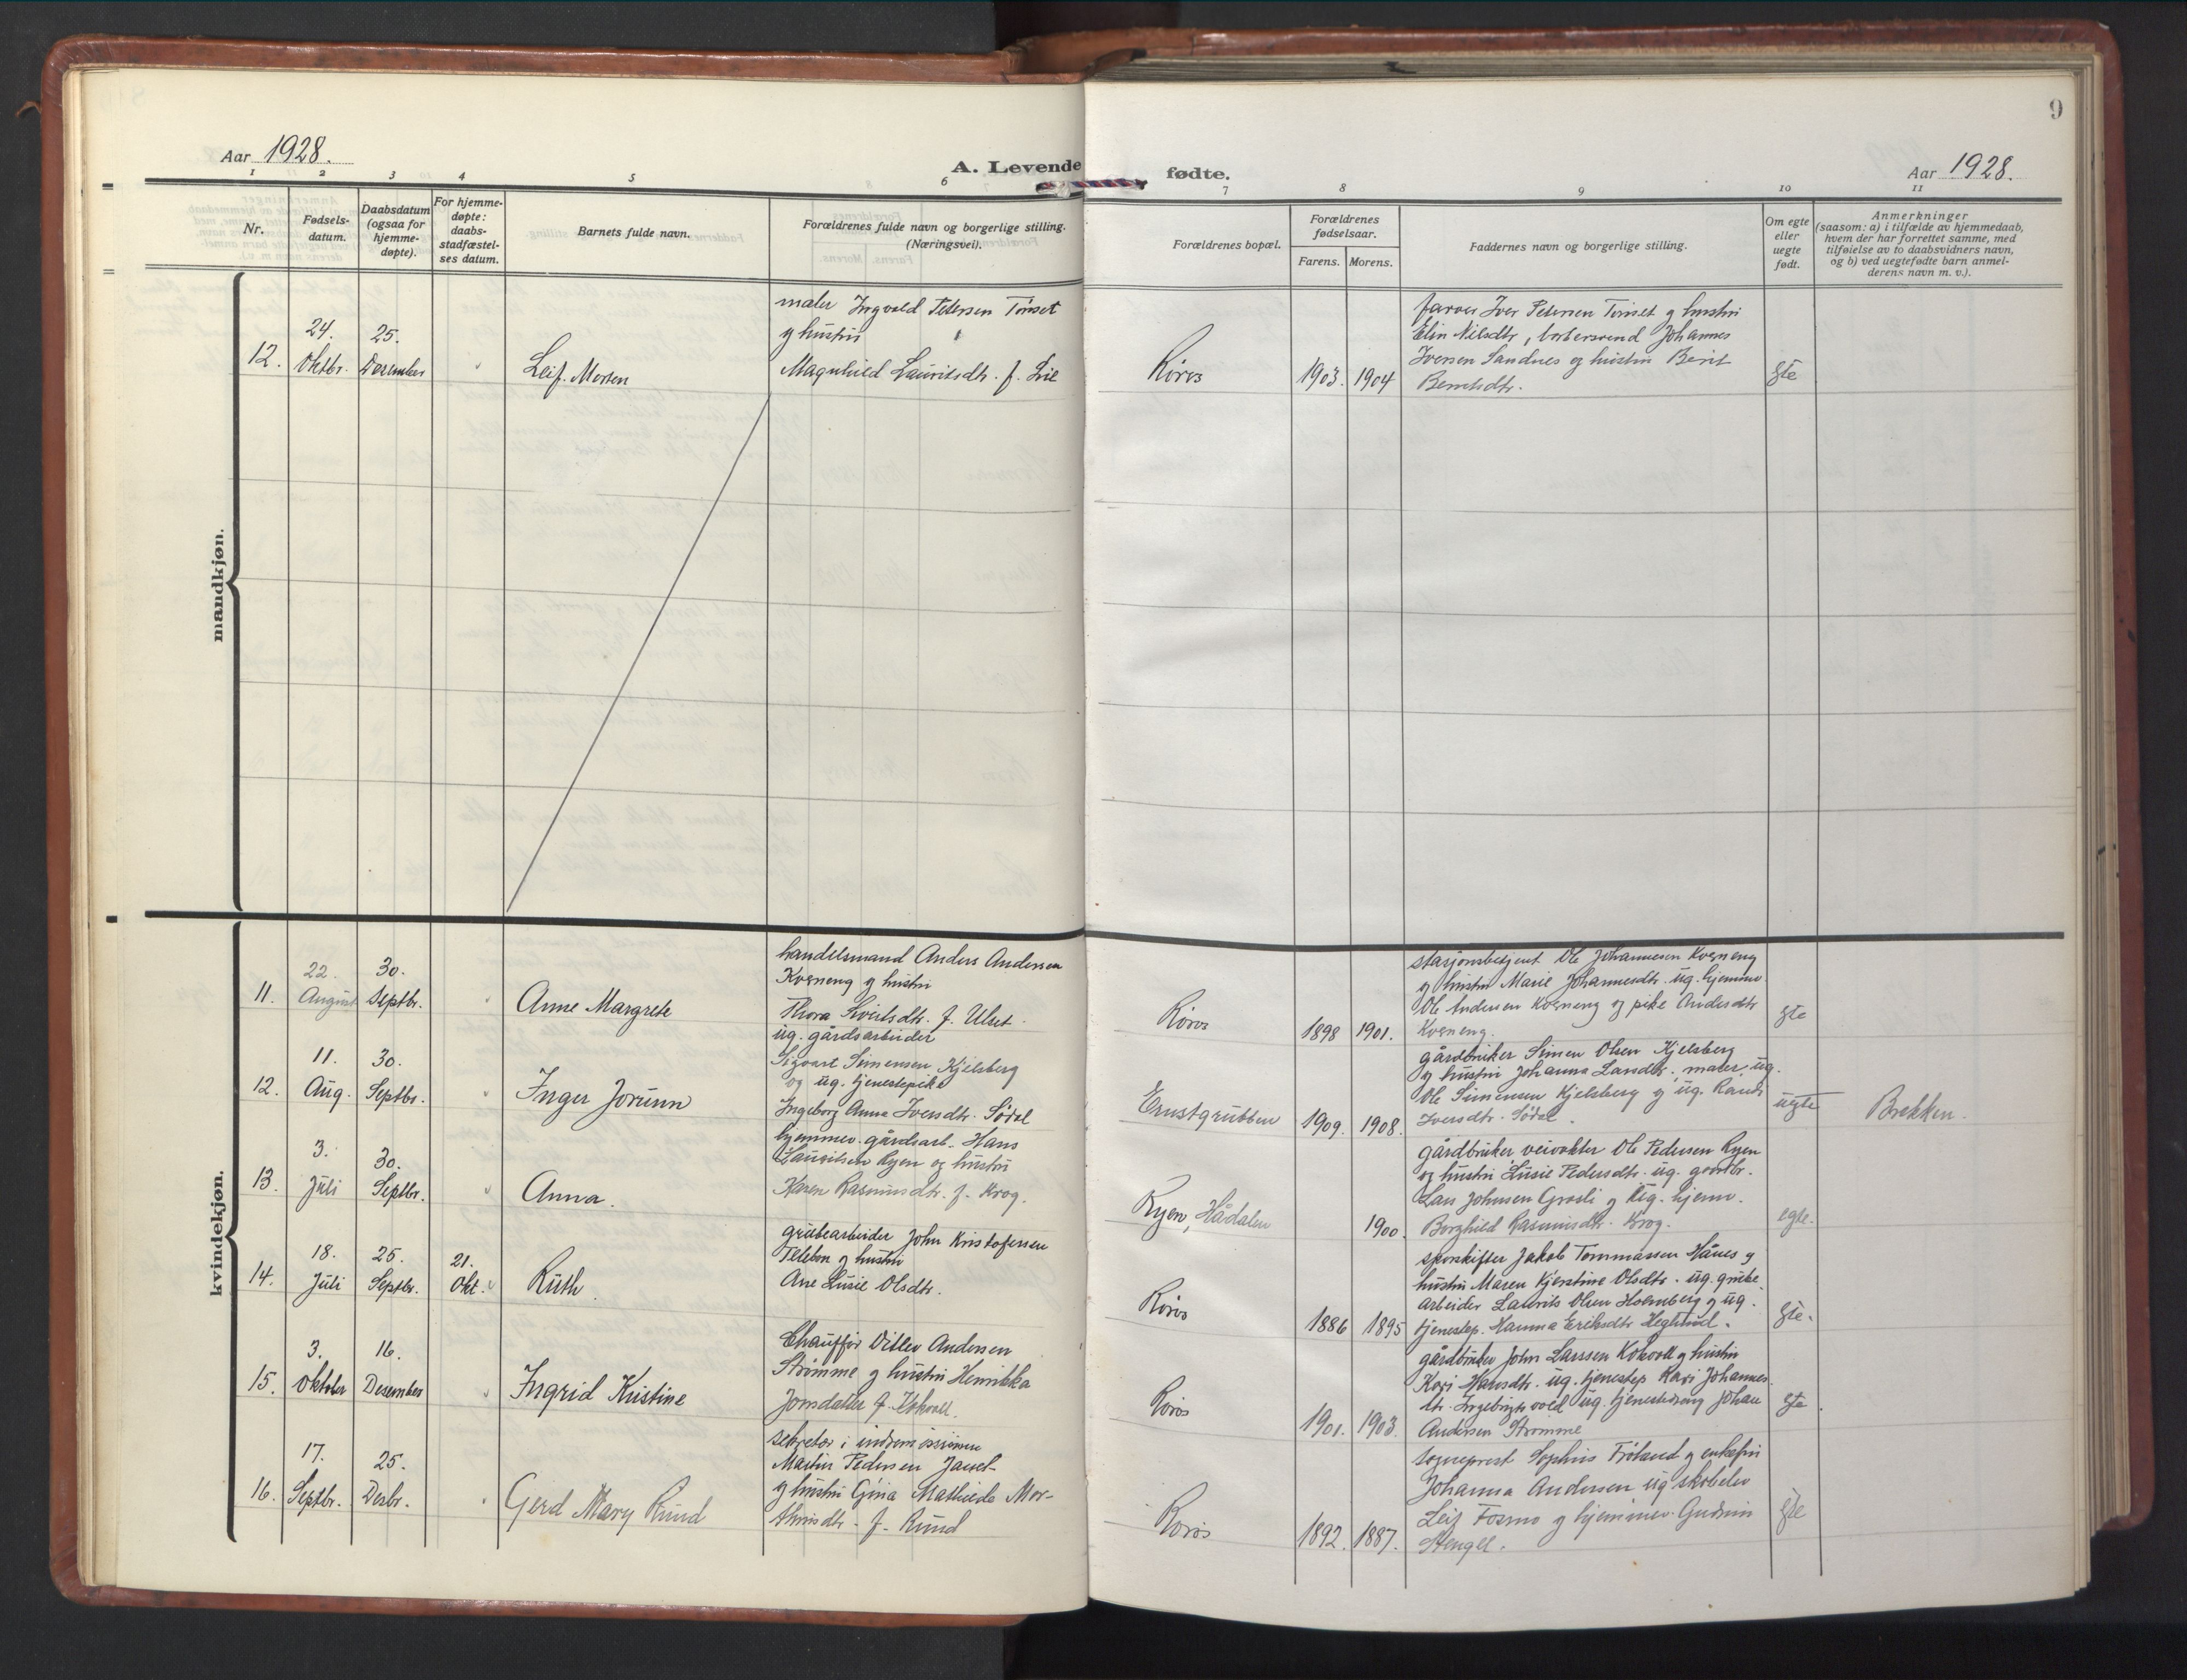 9
Aar 1928.
A. Levende fødte.
Aar 1928.
1 2 3 4 5 6 7 8 9 10 11
Nr.
Fødsels-
datum.
Daabsdatum
(ogsaa for
hjemme-
døpte).
For hjemme-
døpte:
daabs-
stadfæstel-
ses datum.
Barnets fulde navn.
Forældrenes fulde navn og borgerlige stilling.
(Næringsvei).
Forældrenes bopæl.
Forældrenes
fødselsaar.
Farens. Morens.
Faddernes navn og borgerlige stilling.
Om egte
eller
uegte
født.
Anmerkninger
(saasom: a) i tilfælde av hjemmedaab,
hvem der har forrettet samme, med
tilføielse av to daabsvidners navn,
og b) ved uegtefødte barn anmel-
derens navn m. v.).
mandkjøn.
12.
24.
Oktbr.
25.
Desember
Leif Morten
maler Ingvald Petersen Tønset
og hustru
Magnhild Lauritsdtr. f. Lie
Røros
1903. 1904
farver Iver Petersen Tønset og hustru
Elin Nilsdtr, Johannes
Iversen Sandnes og hustru Berit
Berntsdtr.
gte
kvindekjøn.
11.
22.
August
30.
Septbr.
Anne Margrete
handelsmand Anders Andersen
Kverneng og hustru
Thora Sivertsdtr. f. Ulset.
Røros
1898 1901.
stasjonsbetjent Ole Johannesen Kverneng
og hustru Marie Johannesdtr. ug. hjemmev.
Ole Andersen Kverneng og pike Andersdtr
Kverneng.
gte
12.
11.
Aug.
30.
Septbr.
Inger Jorunn
ug. gårdsarbeider
Sigvart Simensen Kjelsberg
og ug. tjenestepike
Ingeborg Anna Iversdtr. Sødal
Ernstgrubben
1909. 1908.
gårdbruker Simen Olsen Kjelsberg
og hustru Johanna Larsdtr. maler, ug.
Ole Simensen Kjelsberg og ug. Randi
Iversdtr. Sødal.
uegte
Brekken.
13.
3.
Juli
30.
Septbr.
Anna.
hjemmev. gårdsarb. Hans
Lauritsen Ryen og hustru
Karen Rasmusdtr. f. Krog.
Ryen, Hådalen
1900.
gårdbruker veivokter Ole Pedersen Ryen
og hustru Lusie Pedersdtr. ug. gardbr.
Lars Johnsen Grosli og ug. hjemv.
Borghild Rasmusdtr. Krog.
egte.
14.
18.
Juli
25.
Septbr.
21.
Okt.
Ruth.
grubearbeider John Kristofersen
og hustru
Ane Lusie Olsdtr.
Røros
1886 1895
sporskifter Jakob Tommassen Hånes og
hustru Maren Kjerstine Olsdtr. ug. grube
arbeider Laurits Olsen Holmberg og ug.
tjenestep. Hanna Eriksdtr
gte.
15.
3.
Oktober
16.
Desember
Ingrid Kristine
Chauffør Ditlev Andersen
Strømme og hustru Henrikka
Jonsdatter f. Kokvoll.
Røros
1901. 1903.
gårdbruker John Larssen Kokvoll og hustru
Kari Hansdtr. ug. tjenestep Kari Johannes
dtr. Ingebrigtsvold ug. tjenestedreng Johan
Andersen Strømme
gte.
16.
17.
Septbr.
25.
Desbr.
Gerd Mary Rund
sekretær i indremissionen
Martin Pedersen
og hustru Gina Mathilde Mor-
tinsdtr. f. Rund
Røros
1892. 1887.
sogneprest Sophus Frøland og enkefru
Johanna Andersen ug skoelev
Leif Fosmo og hjemmev. Gudrun
Stengel.
gte